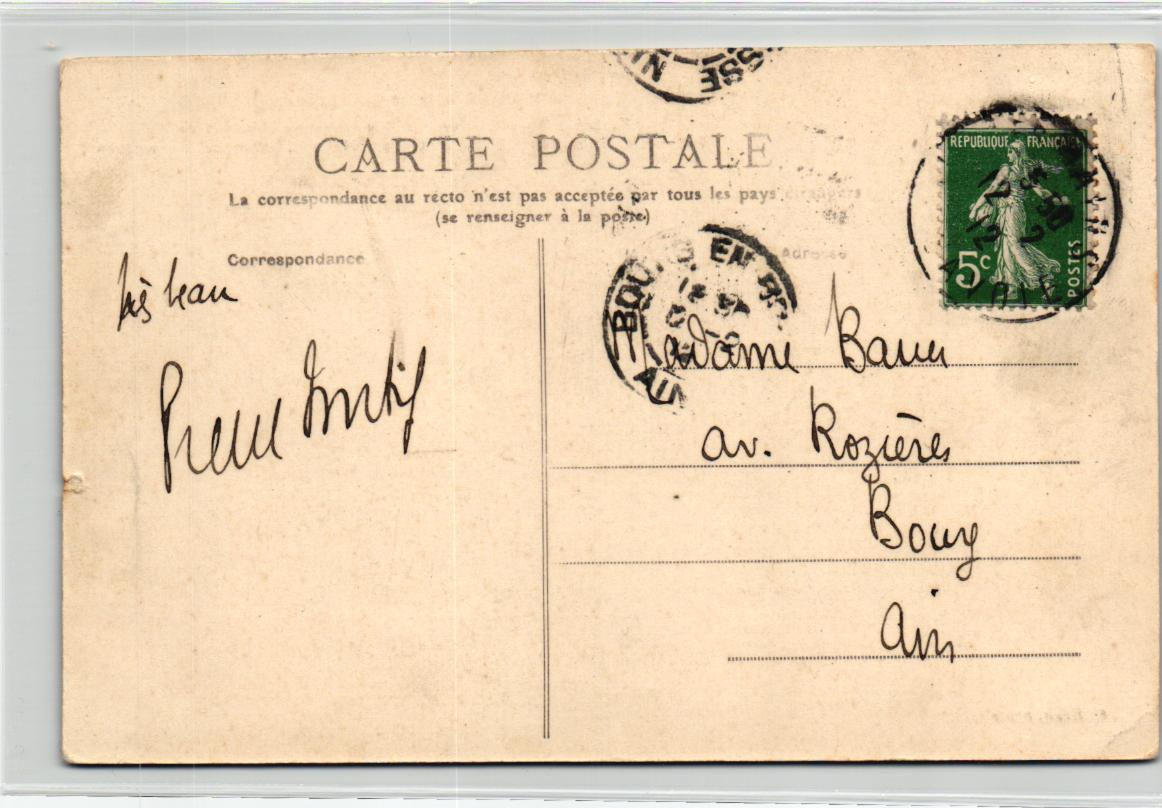 CARTE POSTALE
La correspondance au recto n'est pas acceptée par tous les pays étrangers
(se renseigner à la poste)
Correspondance
Adresse
REPUBLIQUE FRANÇAISE
5c
POSTES
12
12
SSE
BOURG EN BR
AIN
très beau
Madame Bauer
av. Rozières
Bourg
Ain